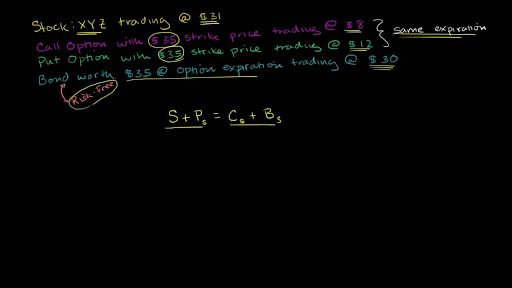 Stock: XYZ trading @ $31
Call Option with $35 strike price trading @ $8
Put Option with $35 strike price trading @ $12
same expiration
Bond worth $35 @ option expration trading @ $30
Risk-Free
S + Ps = Cs + Bs